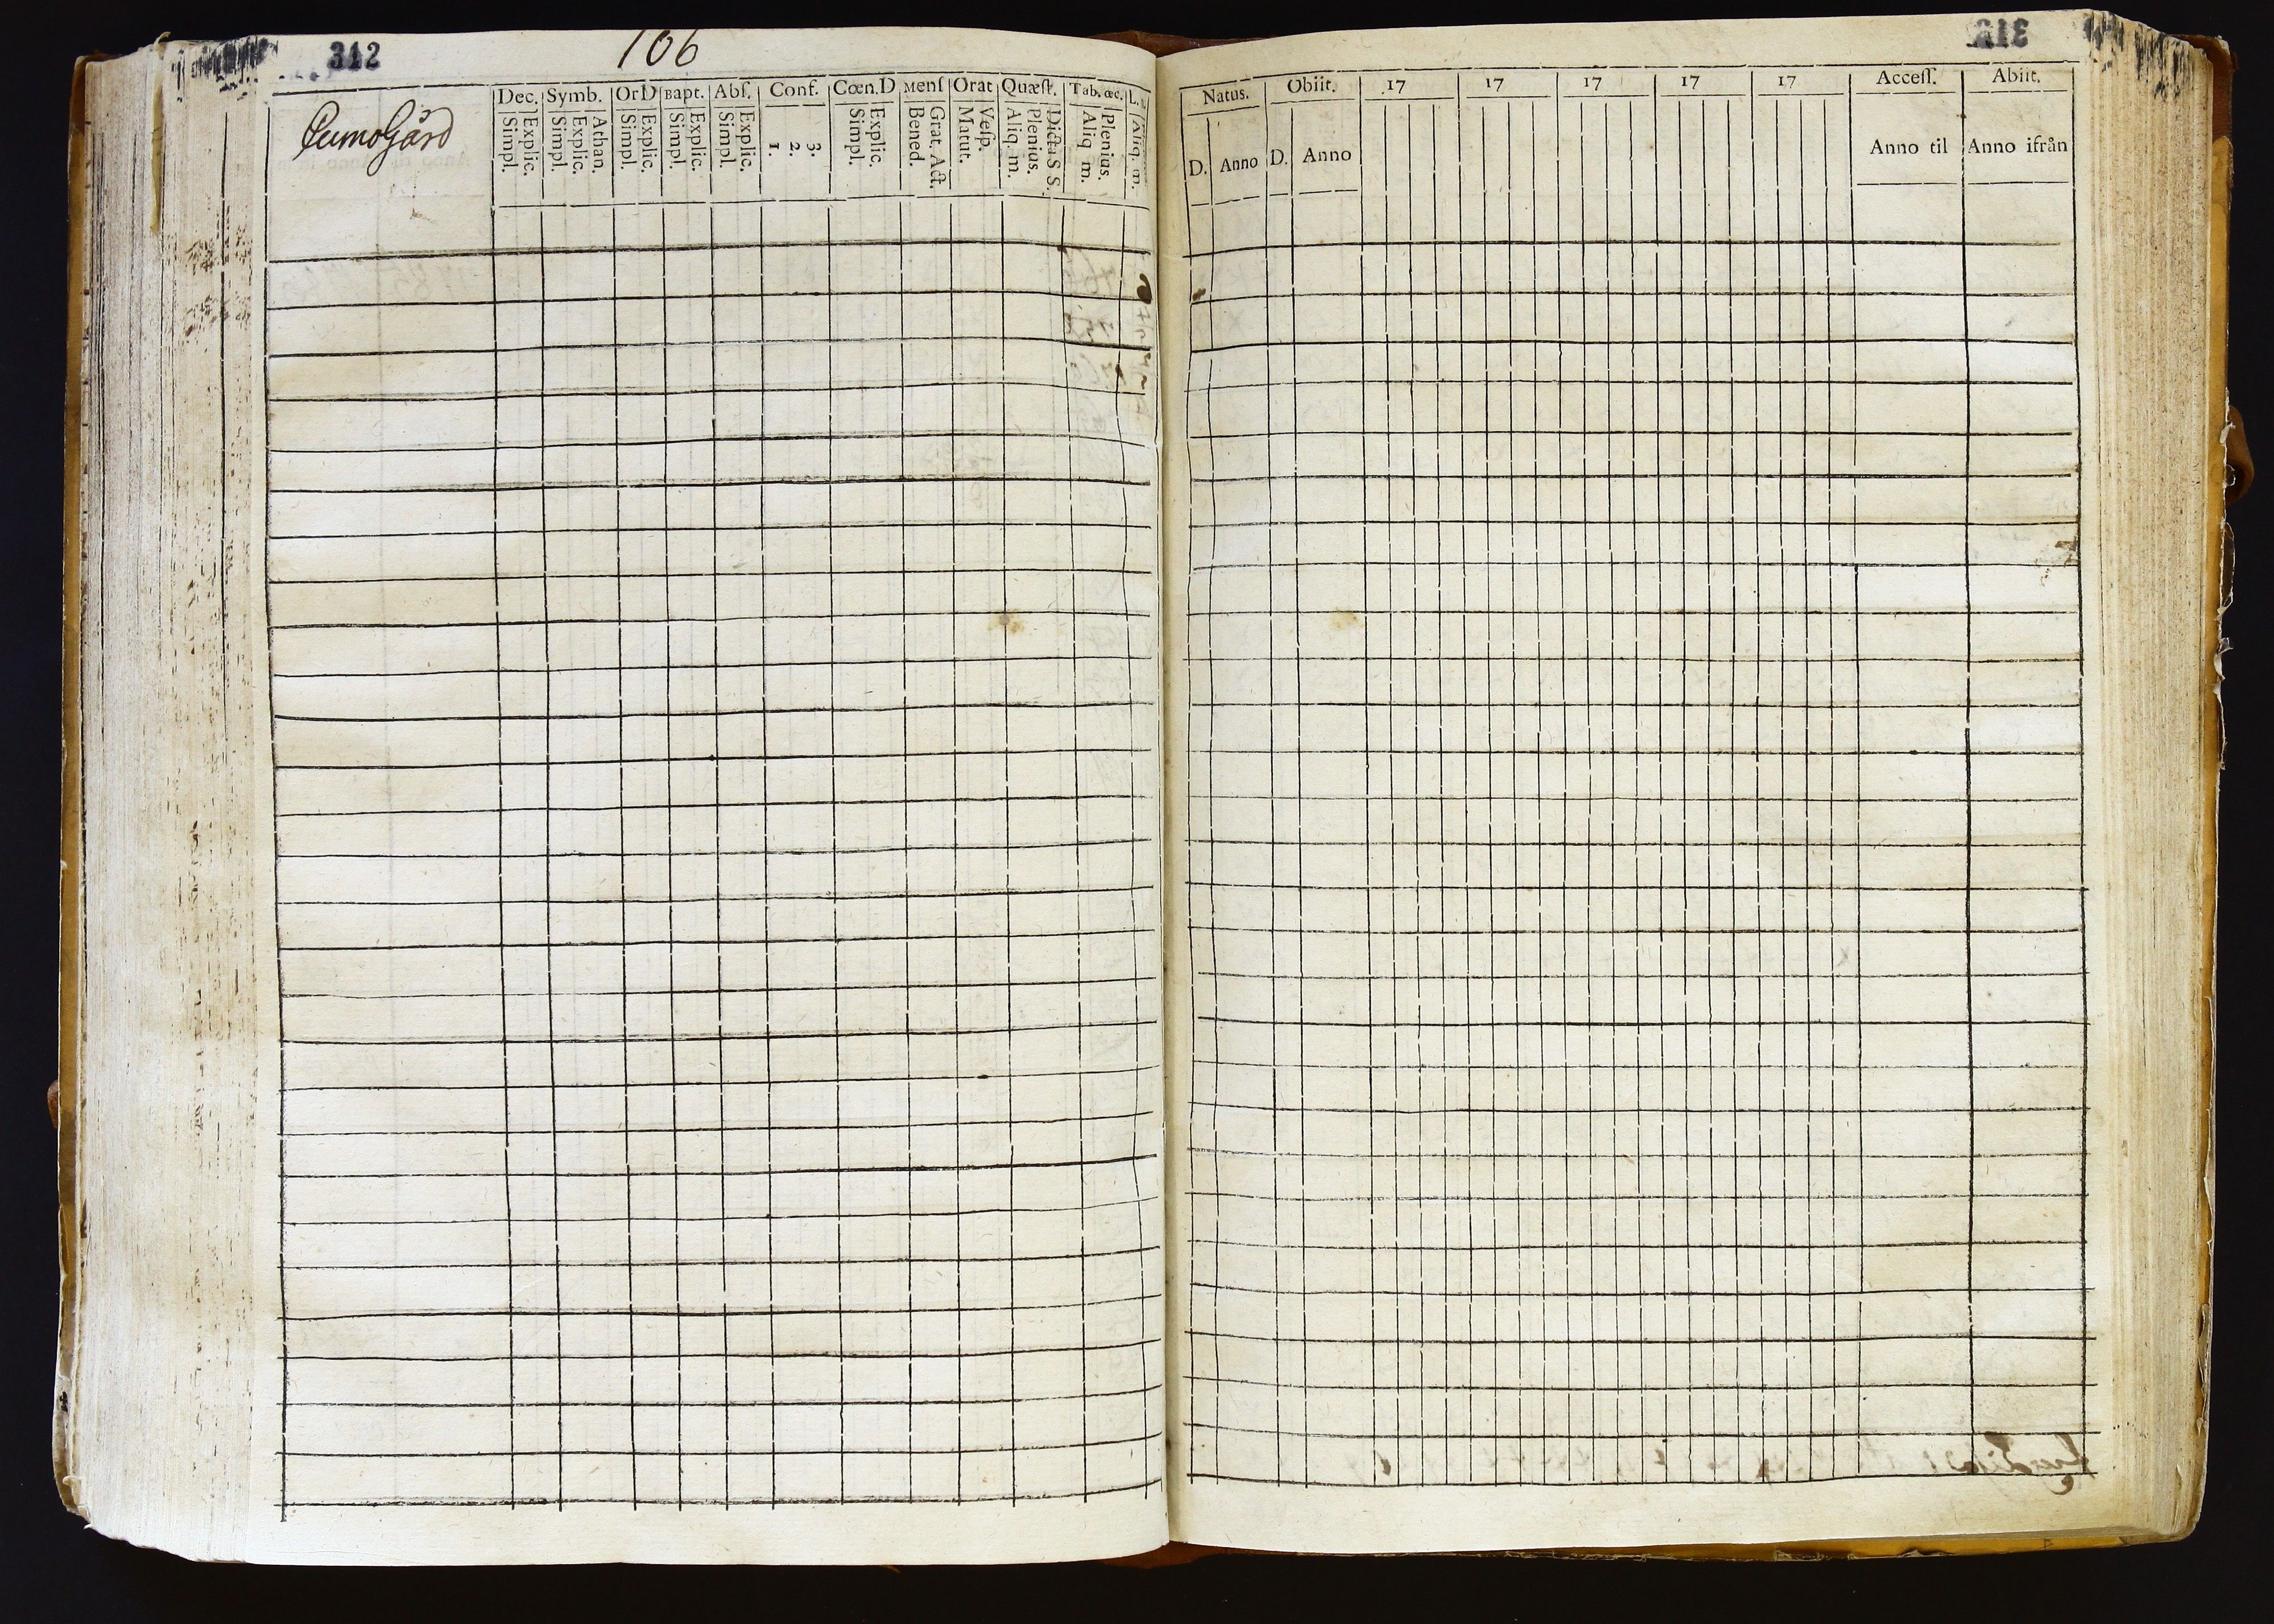 312
106
Dec. Symb. OrD Bapt. Abſ. Conf. Cœn.D Menſ Orat Quæſt. Tab.œc. L.
Simpl. Explic. Simpl. Explic. Athan. Simpl. Explic. Simpl. Explic. Simpl. Explic. 1. 2. 3. Simpl. Explic. Bened. Grat. Act. Matut. Veſp. Aliq. m. Plenius. Dicta S S. Aliq m. Plenius. Aliq. m.
Natus. Obiit. 17 17 17 17 17 Acceſſ. Abiit.
D. Anno D. Anno Anno til Anno ifrån